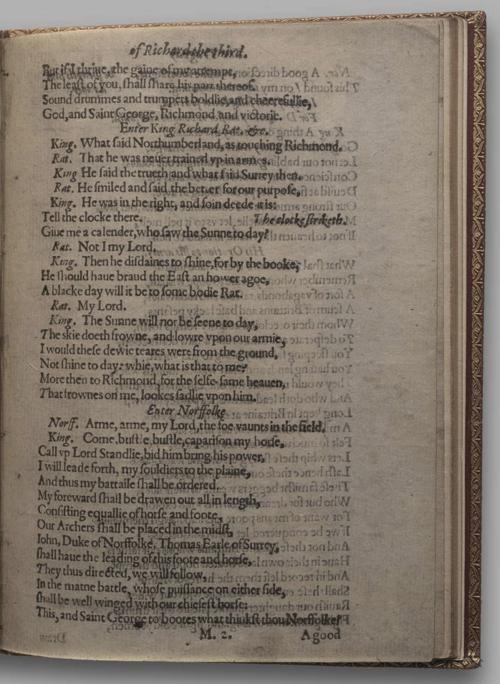 of Richard the third.
But if I thriue, the gaine of my attempt,
The least of you, shall share his part thereof.
Sound drummes and trumpets boldlie, and cheerefullie,
God, and Saint George, Richmond and victorie.
Enter King Richard, Rat. &c.
King. What said Northumberland, as touching Richmond.
Rat. That he was neuer trained vp in armes.
King He said the trueth and what said Surrey then.
Rat. He smiled and said, the better for our purpose,
King. He was in the right, and so in deede it is:
Tell the clocke there. The clocke striketh.
Giue me a calender, who saw the Sunne to day?
Rat. Not I my Lord,
King. Then he disdaines to shine, for by the booke,
He should haue braud the East an hower agoe,
A blacke day will it be to some bodie Rat.
Rat. My Lord.
King. The Sunne will not be seene to day,
The skie doeth frowne, and lowre vpon our armie,
I would these dewie teares were from the ground,
Not shine to day: whie, what is that to me?
More then to Richmond, for the selfe-same heauen,
That frownes on me, lookes sadlie vpon him.
Enter Norffolke.
Norff. Arme, arme, my Lord, the foe vaunts in the field.
King. Come, bustle, bustle, caparison my horse,
Call vp Lord Standlie, bid him bring his power,
I will leade forth, my souldiers to the plaine,
And thus my battaile shall be ordered.
My foreward shall be drawen out all in length,
Consisting equallie of horse and foote,
Our Archers shall be placed in the midst,
Iohn, Duke of Norffolke, Thomas Earle of Surrey,
shall haue the leading of this foote and horse,
They thus directed, we will follow,
In the matne battle, whose puissance on either side,
shall be well winged with our chiefest horse:
This, and Saint George to bootes what thinkst thou Norffolke?
M. 2. A good